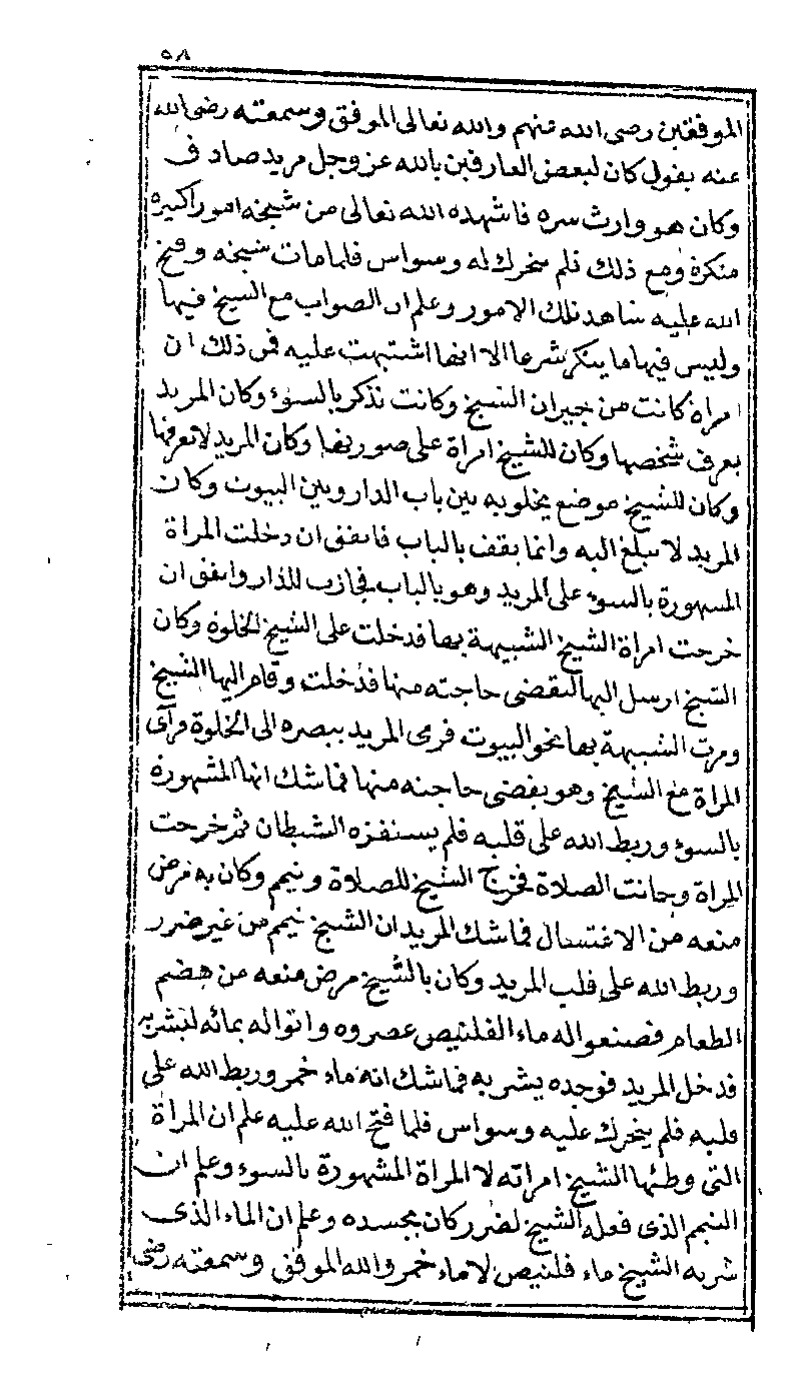 ٥٨
الموفقين رضي الله عنهم والله تعالى الموفق وسمعته رضي الله
عنه يقول كان لبعض العارفين بالله عز وجل مريد صادق
وكان هو وارث سره فاشهده الله تعالى من شيخه امورا كثيرة
منكرة ومع ذلك فلم يتحرك له وسواس فلما مات شيخه وفتح
الله عليه شاهد تلك الامور وعلم ان الصواب مع الشيخ فيها
وليس فيها ما ينكر شرعا الا انها اشتبهت عليه فمن ذلك ان
امراة كانت من جيران الشيخ وكانت تذكر بالسوء وكان المريد
يعرف شخصها وكان للشيخ امراة على صورتها وكان المريد لا يعرفها
وكان للشيخ موضع يخلو به بين باب الدار وبين البيوت وكان
المريد لا يبلغ اليه وانما يقف بالباب فاتفق ان دخلت المراة
المشهورة بالسوء على المريد وهو بالباب فجازت للدار واتفق ان
خرجت امراة الشيخ الشبيهة بها فدخلت على الشيخ الخلوة وكان
الشيخ ارسل اليها ليقضي حاجته منها فدخلت وقام اليها الشيخ
ومرت الشبيهة بها نحو البيوت فرمى المريد ببصره الى الخلوة فرآى
المراة مع الشيخ وهو يقضي حاجته منها فما شك انها المشهورة
بالسوء وربط الله على قلبه فلم يستفزه الشيطان ثم خرجت
المراة وحانت الصلاة فخرج الشيخ للصلاة وتيمم وكان به مرض
منعه من الاغتسال فما شك المريد ان الشيخ تيمم من غير ضرر
وربط الله على قلب المريد وكان بالشيخ مرض منعه من هضم
الطعام فصنعوا له ماء الفلنيص عصروه واتوا له بمائه ليشربه
فدخل المريد فوجده يشربه فما شك انه ماء خمر وربط الله على
قلبه فلم يتحرك عليه وسواس فلما فتح الله عليه علم ان المراة
التي وطئها الشيخ امراته لا المراة المشهورة بالسوء وعلم ان
التيمم الذي فعله الشيخ لضرر كان بجسده وعلم ان الماء الذي
شربه الشيخ ماء فلنيص لا ماء خمر والله الموفق وسمعته رضي